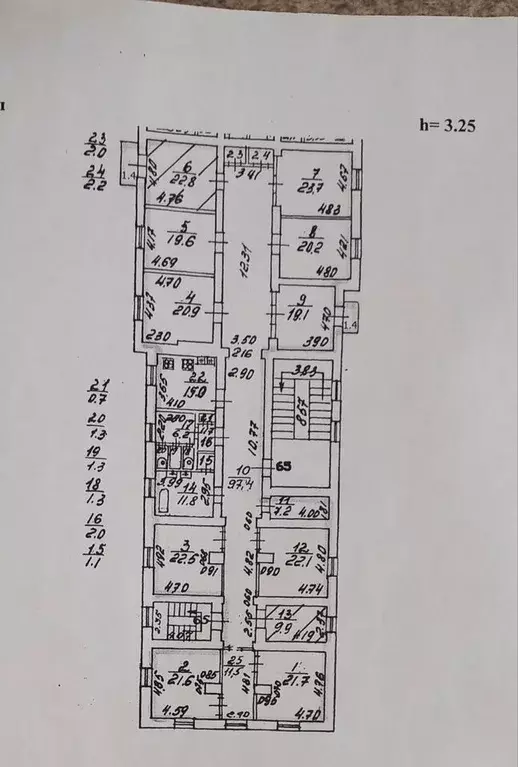 h= 3.25
23
2.0
24
2.2
2.3 2.4
3.41
1.4
4.80
6
22.8
4.76
7
23.7
4.67
4.83
4.17
5
19.6
4.69
8
20.2
4.21
4.80
12.31
4.70
4.37
4
20.9
2.30
9
18.1
4.70
3.90
1.4
3.50
2.16
2.90
3.83
8.67
22
15.0
3.65
4.10
21
0.7
20
1.3
19
1.3
18
1.3
16
2.0
15
1.1
17
6.2
16
15
10.77
10
97.4
65
14
11.8
2.95
3.99
11
7.2
4.00
1.81
0.60
3
22.6
4.92
4.70
0.91
4.82
12
22.1
4.80
0.90
4.74
0.60
2.35
65
4.07
2.56
13
9.9
4.19
2
21.6
4.85
0.85
4.59
25
11.5
4.81
2.40
1
21.7
4.76
0.90
4.70